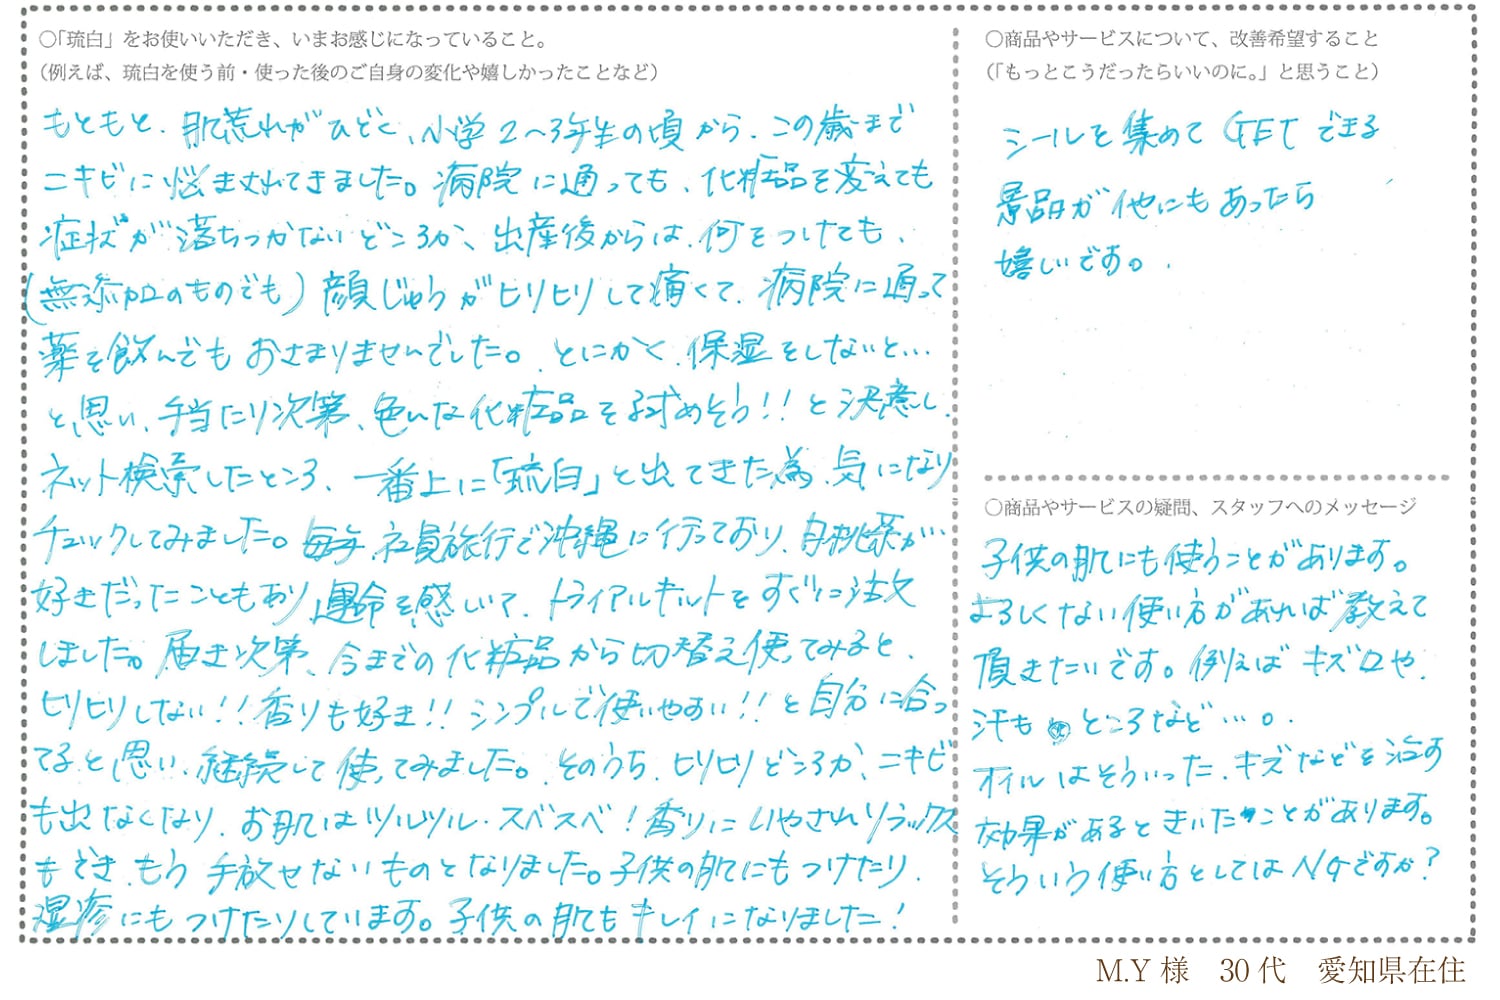 ○「琉白」をお使いいただき、いまお感じになっていること。
（例えば、琉白を使う前・使った後のご自身の変化や嬉しかったことなど）
もともと、肌荒れがひどく、小学2～3年生の頃から、この歳まで
ニキビに悩まされてきました。病院に通っても、化粧品を変えても
症状が落ちつかないどころか、出産後からは、何をつけても、
(無添加のものでも)顔じゅうがヒリヒリして痛くて、病院に通って
薬を飲んでもおさまりませんでした。とにかく、保湿をしないと…
と思い、手当たり次第、色んな化粧品を試めそう!!と決意し、
ネット検索したところ、一番上に「琉白」と出てきた為、気になり
チェックしてみました。毎年、社員旅行で沖縄に行っており、月桃茶が…
好きだったこともあり、運命を感じて、トライアルキットをすぐに注文
しました。届き次第、今までの化粧品から切替え使ってみると、
ヒリヒリしない!!香りも好き!!シンプルで使いやすい!!と自分に合っ
てると思い、継続して使ってみました。そのうち、ヒリヒリどころか、ニキビ
も出なくなり、お肌はツルツル・スベスベ!香りにいやされリラックス
もでき、もう手放せないものとなりました。子供の肌にもつけたり、
湿疹にもつけたりしています。子供の肌もキレイになりました!
○商品やサービスについて、改善希望すること
（「もっとこうだったらいいのに。」と思うこと）
シールを集めてGETできる
景品が他にもあったら
嬉しいです。
○商品やサービスの疑問、スタッフへのメッセージ
子供の肌にも使うことがあります。
よろしくない使い方があれば教えて
頂きたいです。例えばキズ口や、
汗もところなど…。
オイルはそういった、キズなどを治す
効果があるときいたことがあります。
そういう使い方としてはNGですか?
M.Y 様　30代　愛知県在住